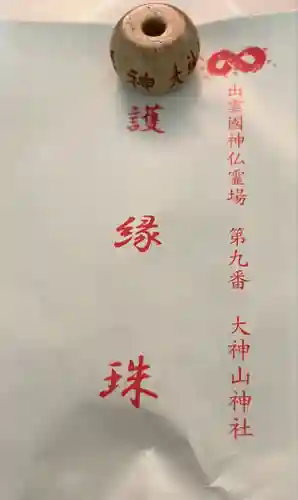 出雲國神仏霊場 第九番 大神山神社
護縁珠
神 大